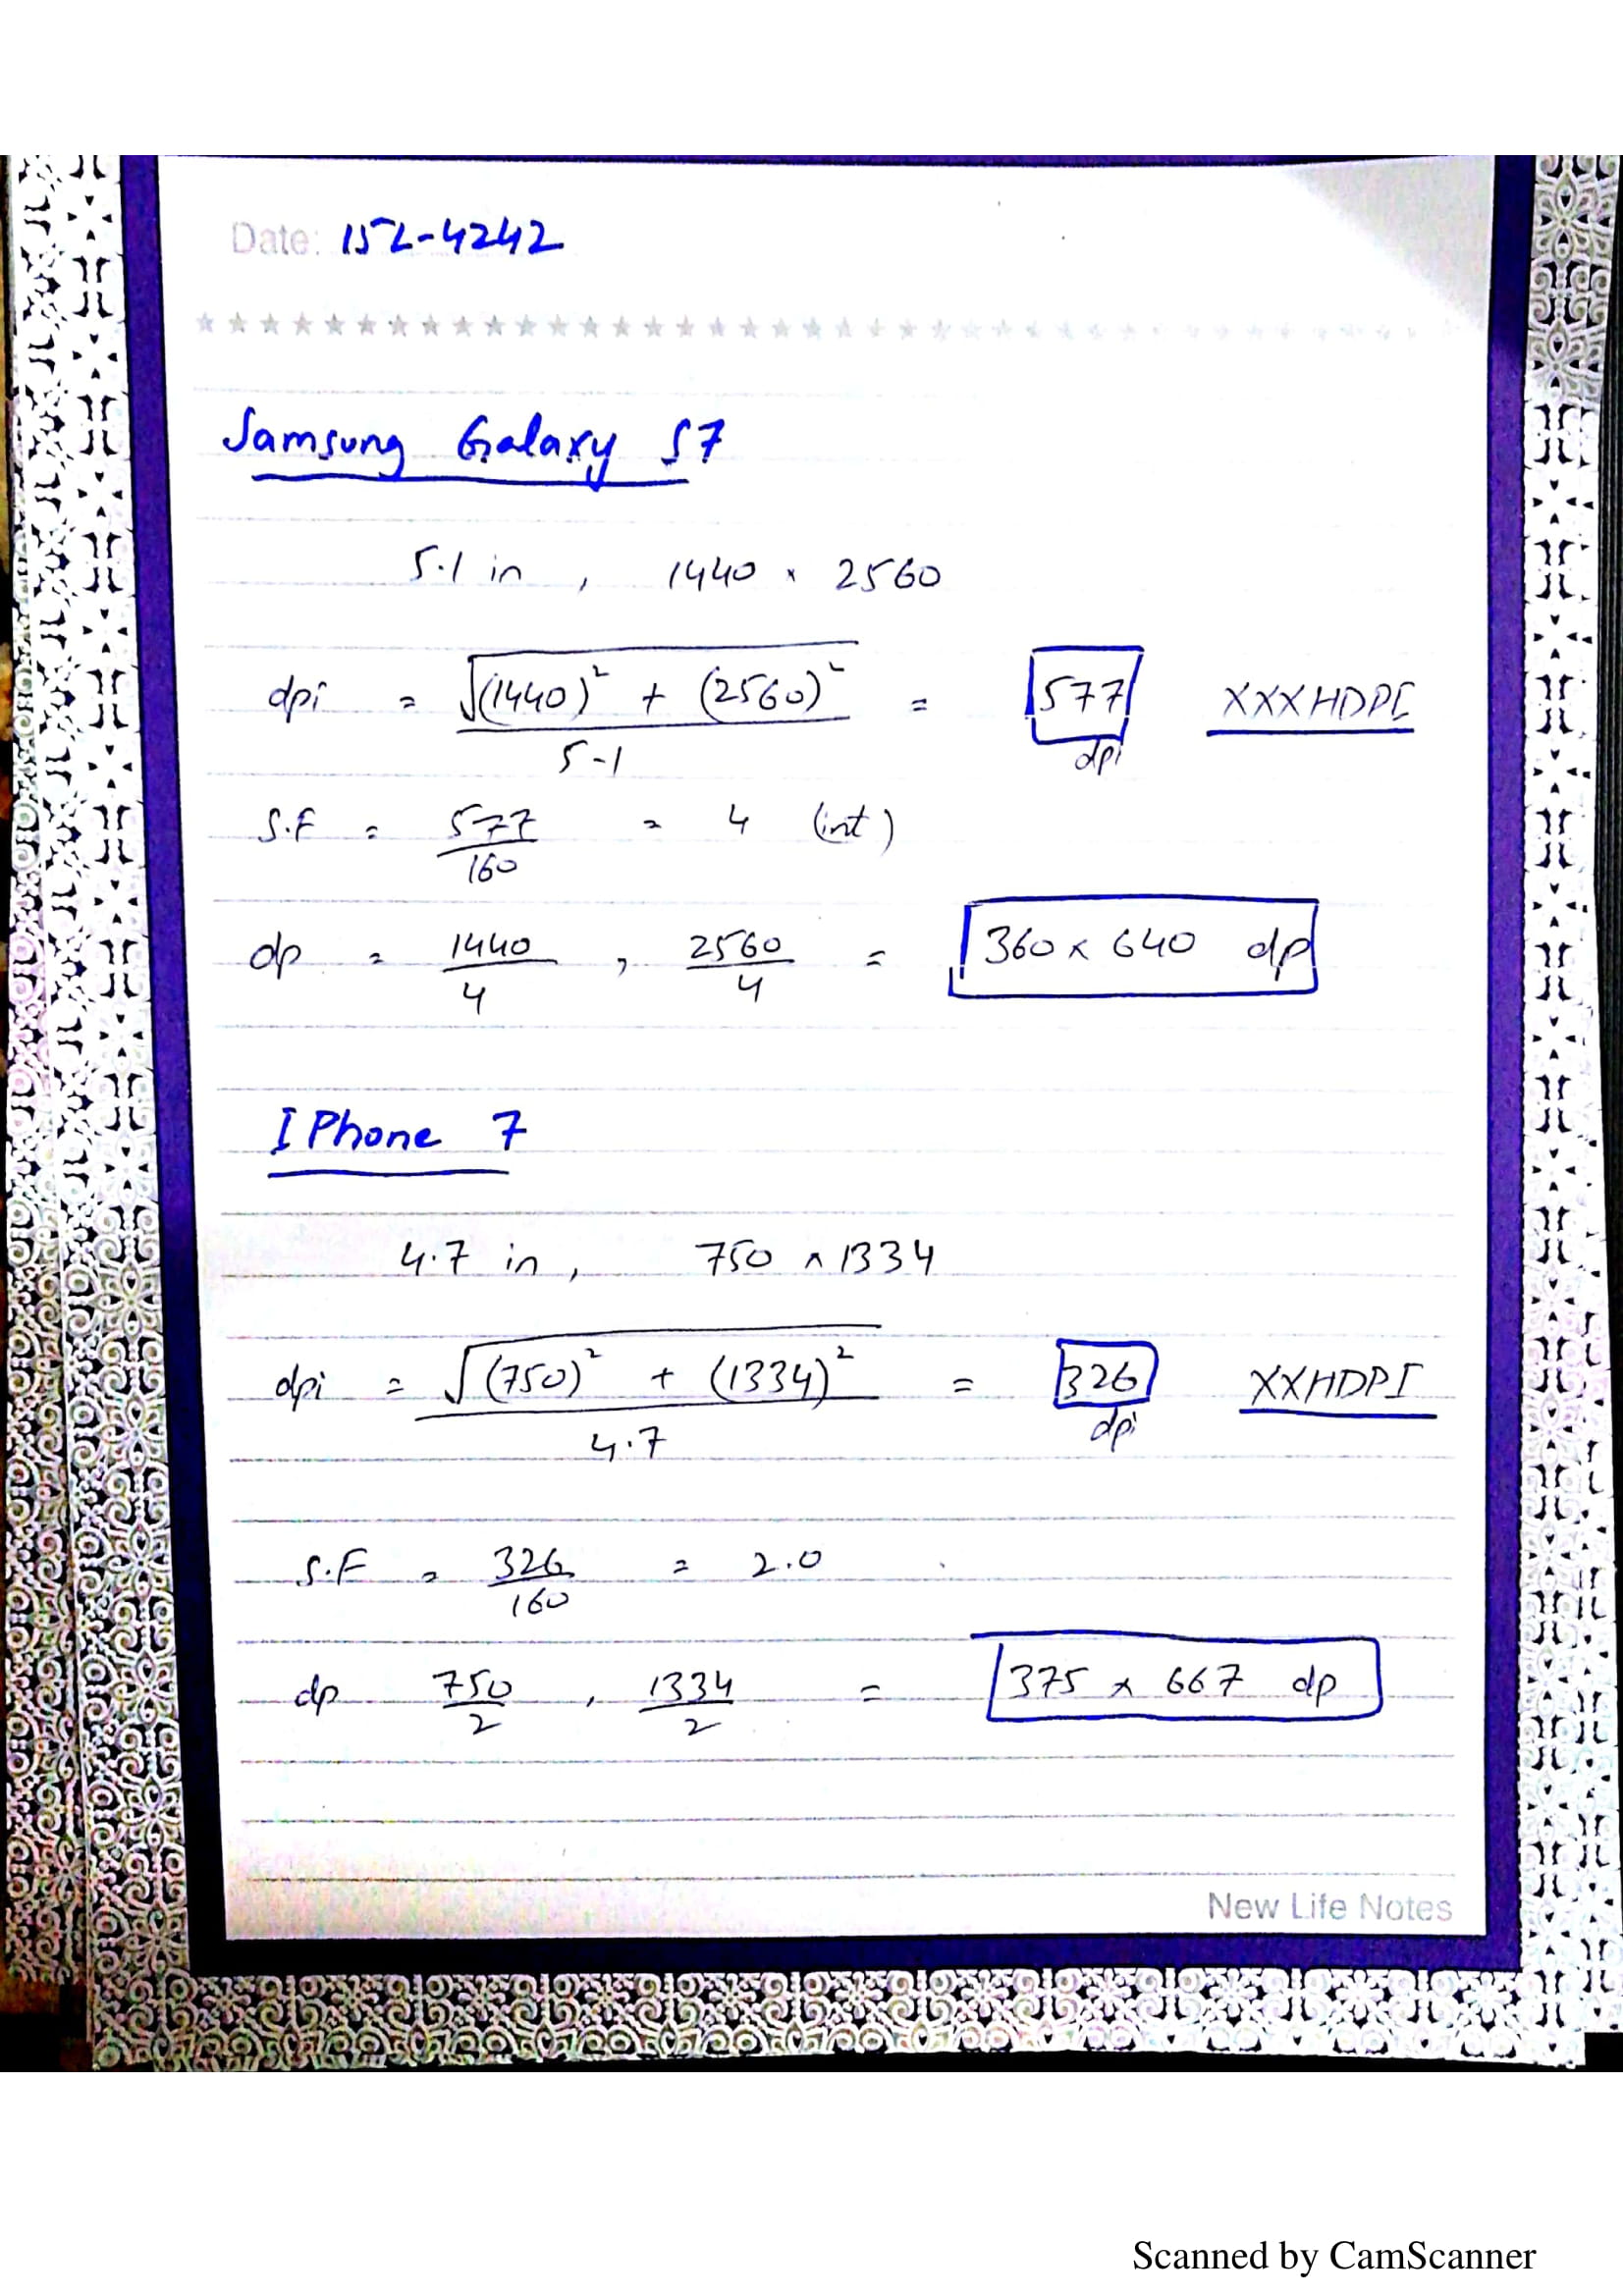 Date: 15L-4242
Samsung Galaxy S7
5.1 in , 1440 x 2560
dpi = √(1440)² + (2560)² / 5.1 = 577 dpi XXXHDPI
S.F = 577 / 160 = 4 (int)
dp = 1440 / 4 , 2560 / 4 = 360 x 640 dp
I Phone 7
4.7 in , 750 x 1334
dpi = √(750)² + (1334)² / 4.7 = 326 dpi XXHDPI
S.F = 326 / 160 = 2.0
dp 750 / 2 , 1334 / 2 = 375 x 667 dp
New Life Notes
Scanned by CamScanner